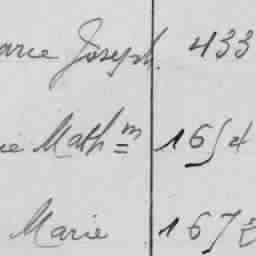 arie Joseph. 433
ie Math m 1654
Marie 167